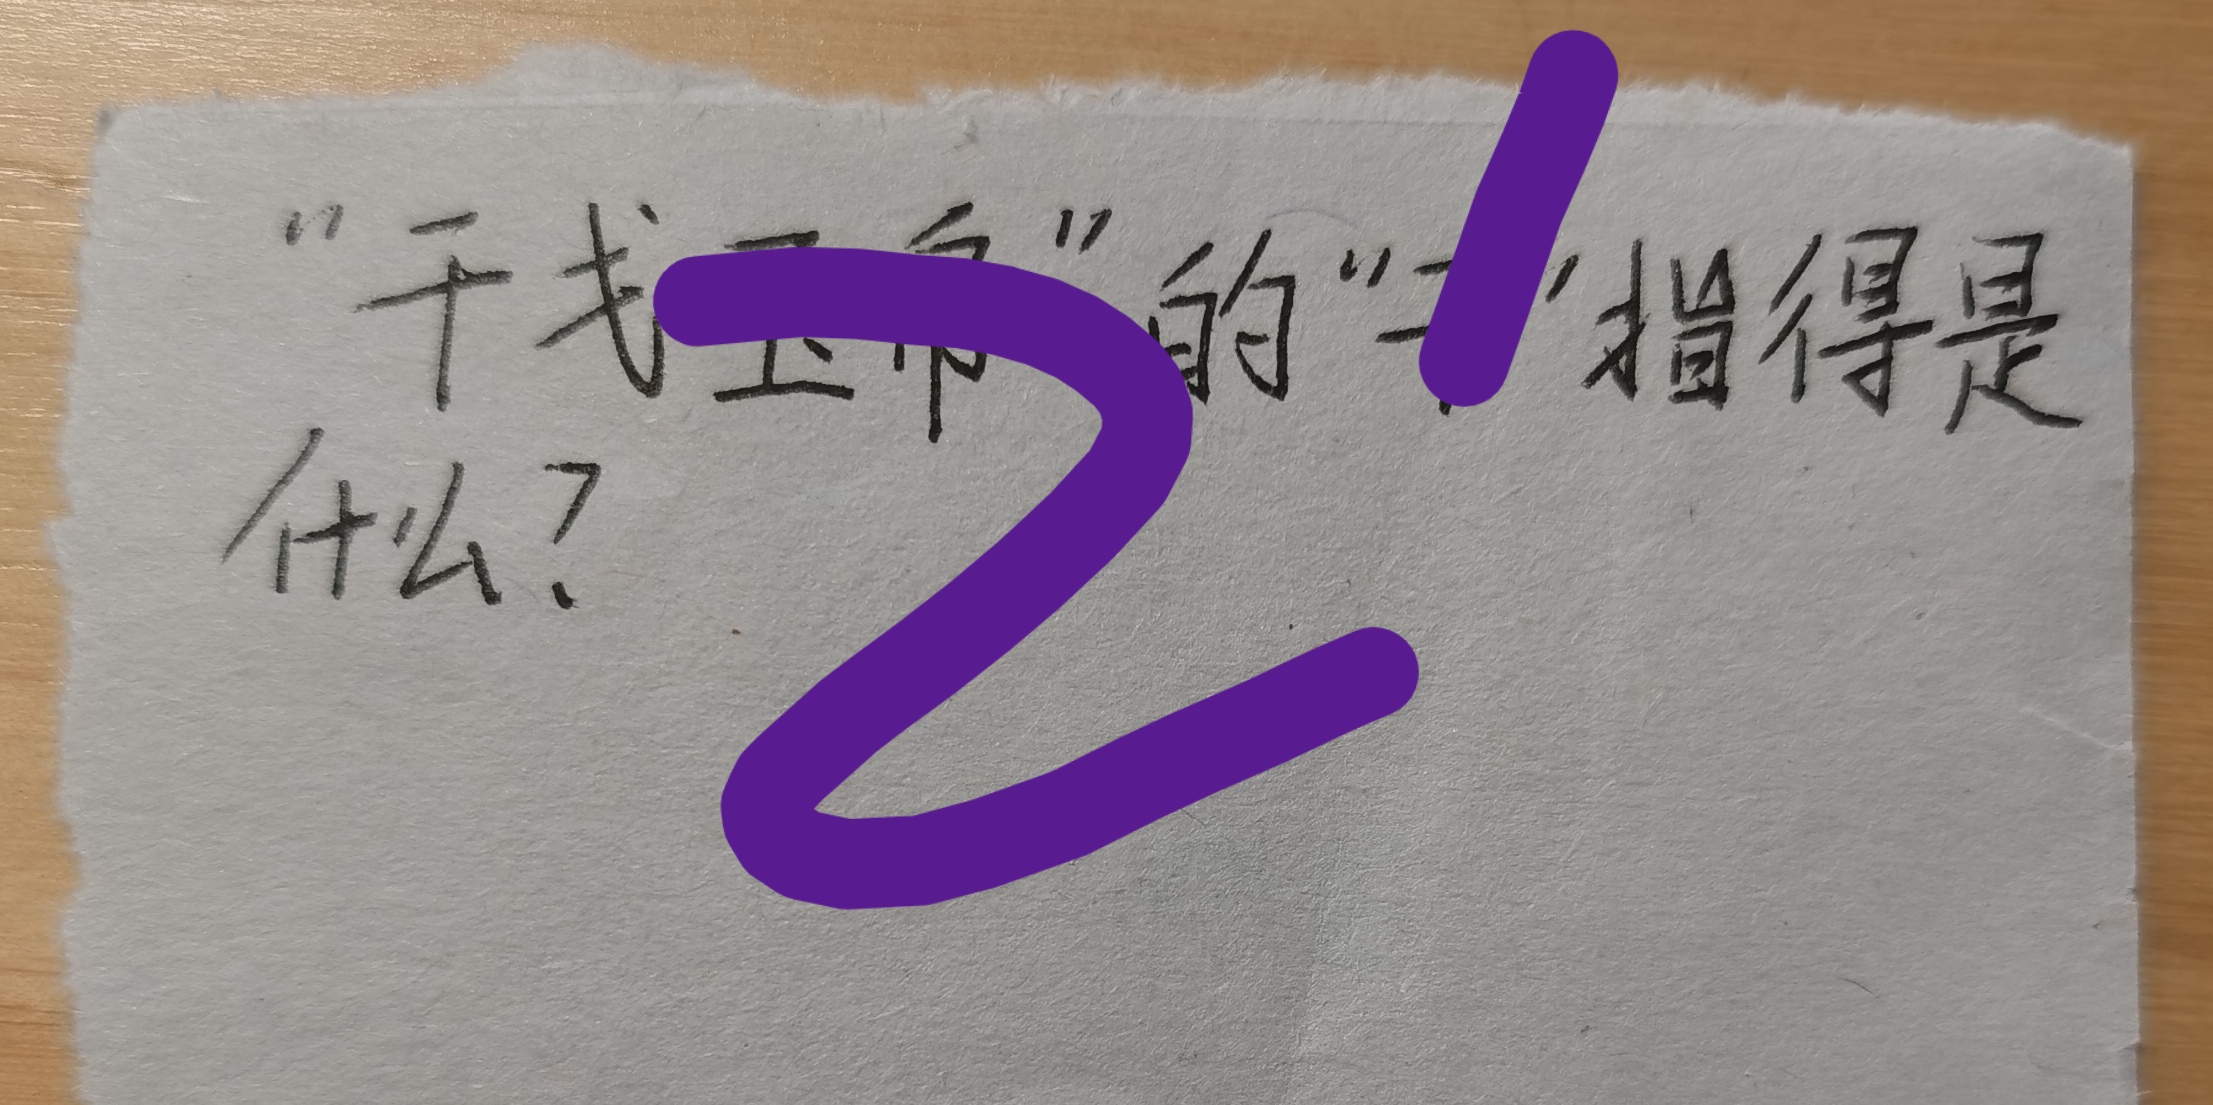 "干戈玉帛"的"干"指得是
什么?